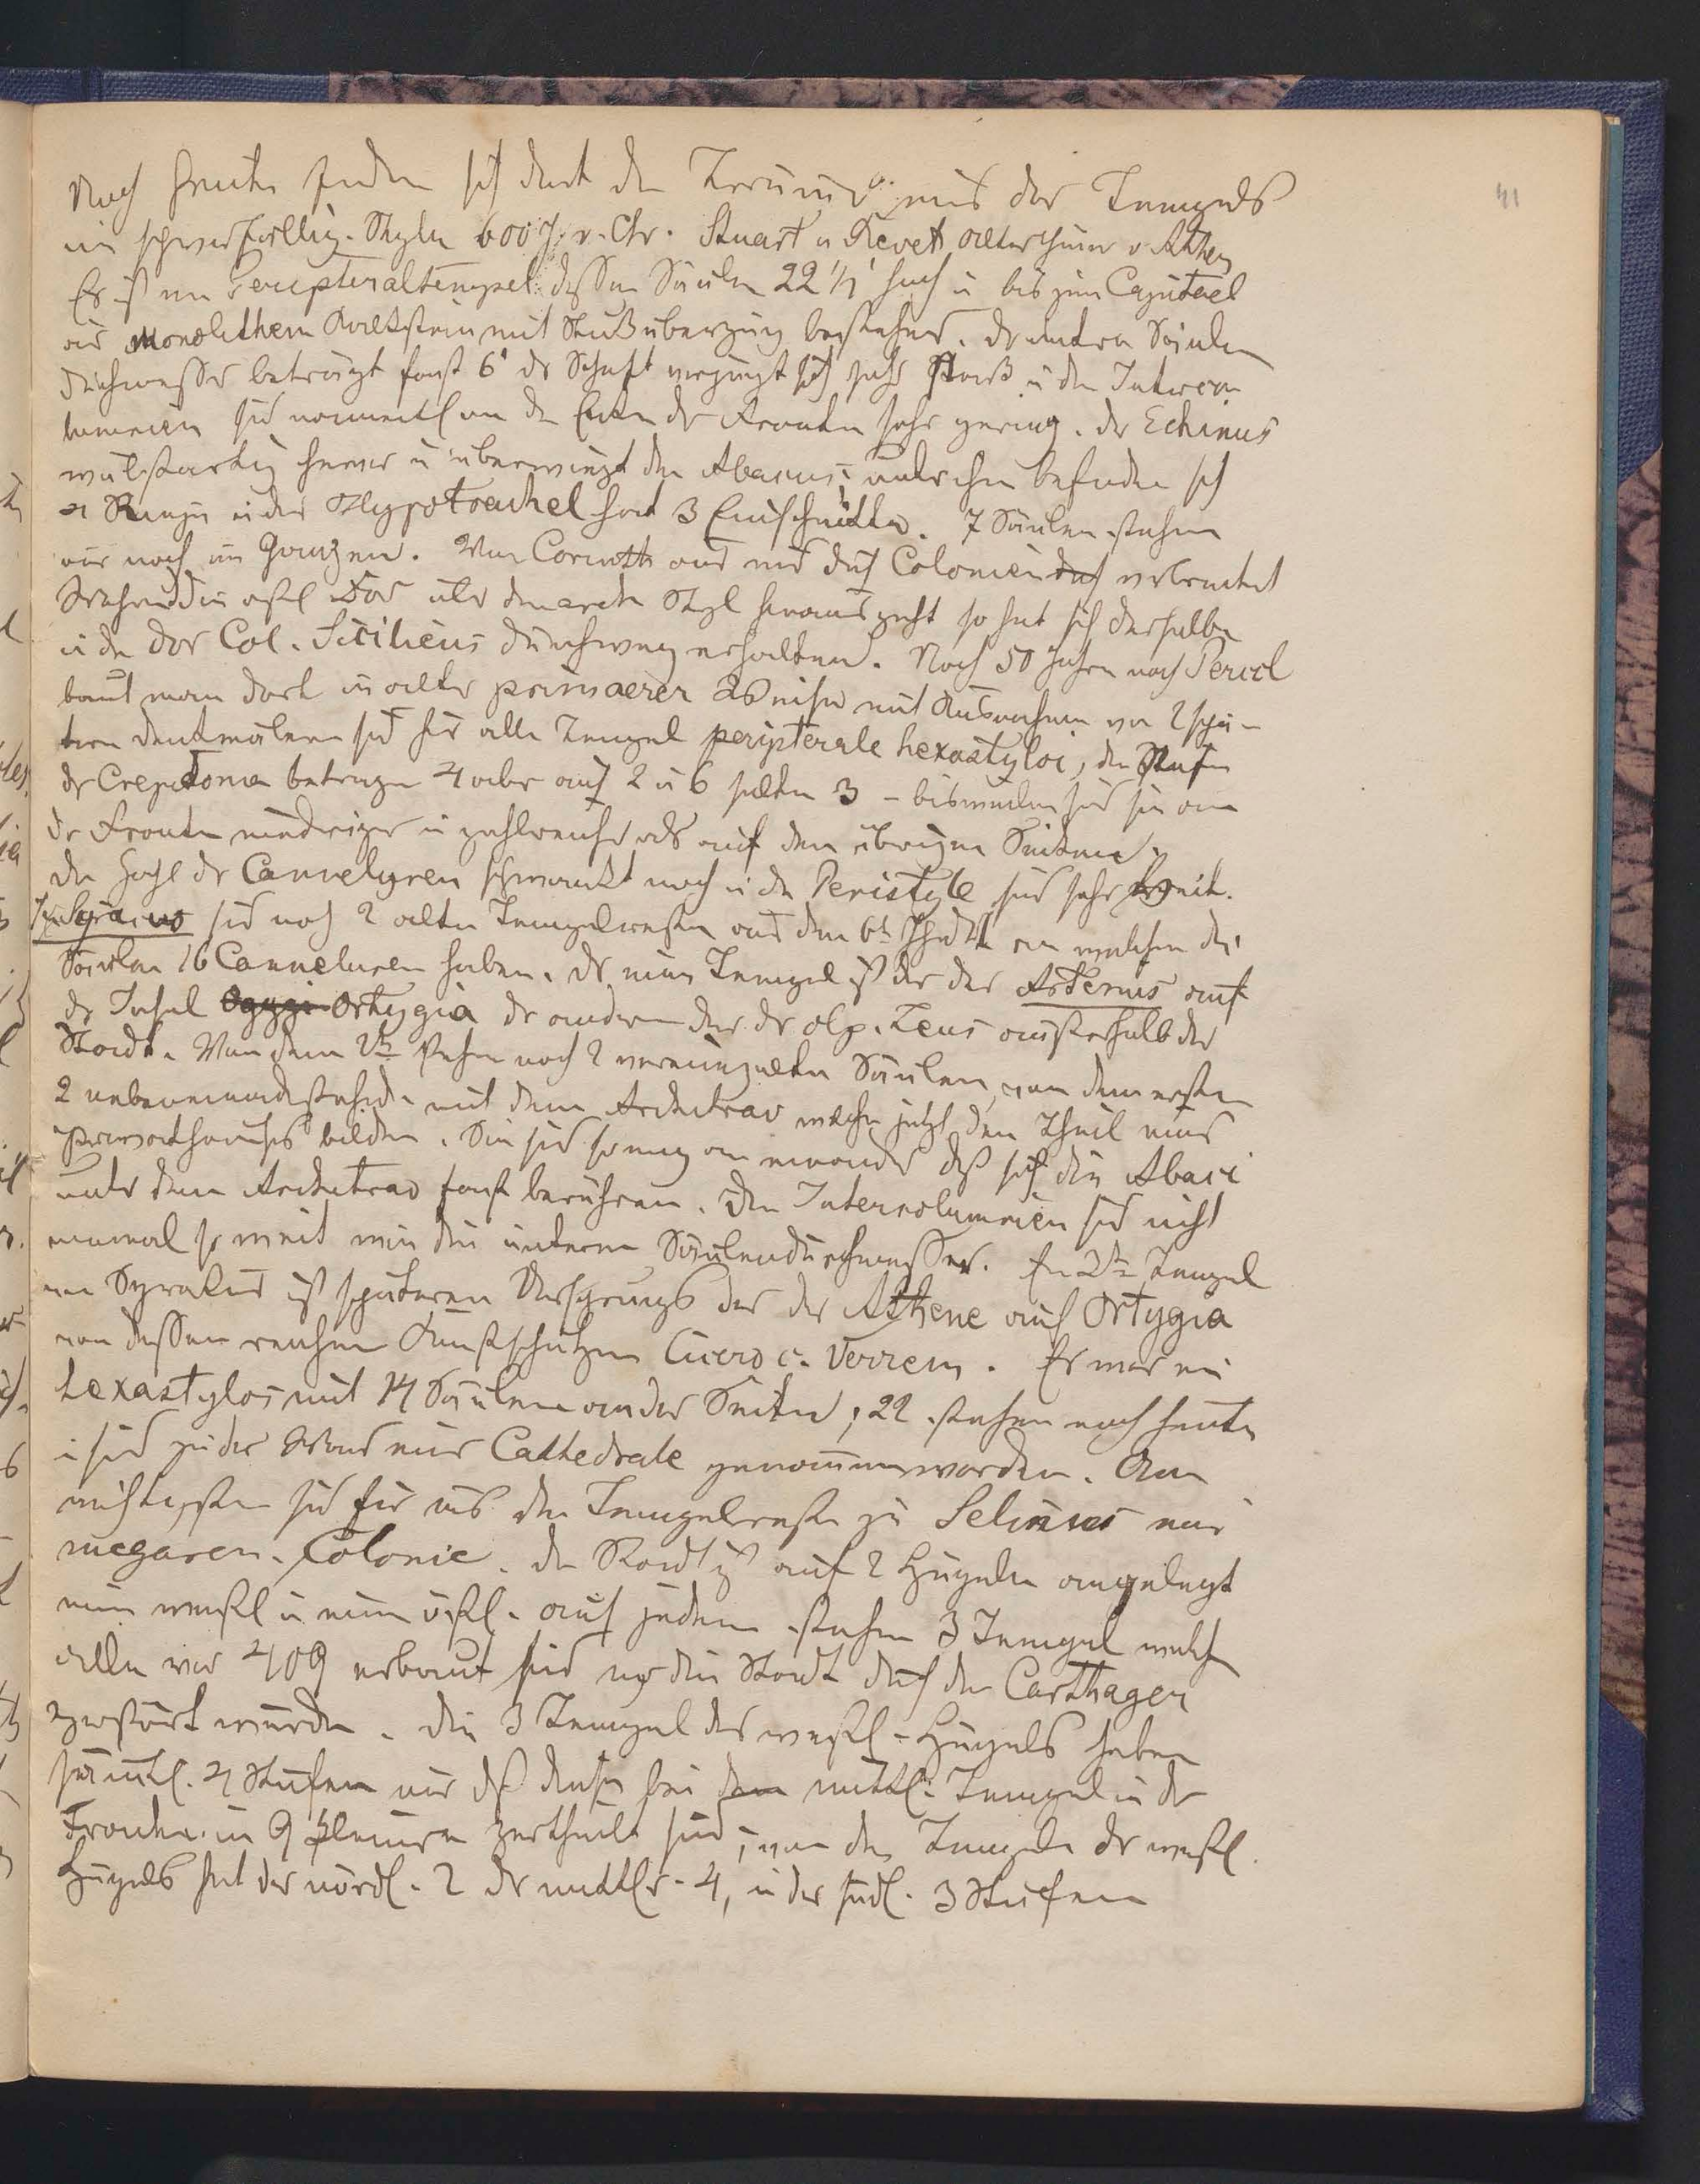 41
Noch heute finden sich dort die Trümmer eines dor Tempels
im schwerfällig. Style 600 J. v. Chr. Stuart u Revett Alterthümer v Athen
Es ist ein Peripteraltempel dessen Säulen 22 1/2' hoch u bis zum Capitael
aus monolithem Kalkstein mit Stucküberzug bestehend. Der untere Säulen
durchmesser beträgt fast 6' der Schaft verjüngt sich sehr stark u die Intercol
lumnien sind namentl an den Ecken der Fronten sehr gering. Der Echinus
wulstartig hervor u überwiegt den Abacus; unter ihm befinden sich
4 Ringe u der Hypotrachel hat 3 Einschnitte. 7 Säulen stehen
nur noch im Ganzen. Von Corinth aus und durch Colonien verbreitet
Während im östl. Dor über den arch. Styl hinausgeht so hat sich derselbe
in den dor Col. Siciliens durchweg erhalten. Noch 50 Jahre nach Pericl
baut man dort in alter primaerer Weise mit Ausnahme von 2 spä-
tern Denkmälern sind hier alle Tempel peripterale hexastyloi, die Stufen
der Crepidoma betragen 4 aber auch 2 u 6 selten 3 - bisweilen sind sie an
der Fronte niedriger u zahlreicher als auf den übrigen Seiten.
Die Zahl der Cannelyren schwankt noch u die Peristyle sind sehr breit.
In Syracus sind noch 2 alte Tempelreste aus dem 6t Jhdt an welchen die
Säulen 16 Canneluren haben. Der eine Tempel ist der der Artemis auf
der Insel Ortygia der andere der des olp. Zeus ausserhalb der
Stadt. Von dem 2ten stehen noch 2 vereinzelte Säulen, von dem ersten
2 nebeneinanderstehende mit dem Architrav welche jetzt den Theil eines
Privathauses bilden. Sie sind so eng an einander dß sich die Abaci
unter dem Architrav fast berühren. Die Intercolumnien sind nicht
einmal so weit wie die unteren Säulendurchmesser. Ein 3ter Tempel
in Syrakus ist späteren Ursprungs der der Athene auf Ortygia
von dessen reichen Kunstschätzen Cicero c. Verrem. Er war ein
hexastylos mit 14 Säulen an der Seite; 22 stehen noch heute
u sind zu der Wand einer Cathedrale genommen worden. Am
wichtigsten sind für uns die Tempelreste zu Selinus einer
megaren. Colonie. Die Stadt ist auf 2 Hügeln angelegt
einem westl u einem östl. auf jedem stehen 3 Tempel welche
alle vor 409 erbaut sind wo die Stadt durch die Carthager
zerstört wurde. Die 3 Tempel des westl. Hügels haben
sämtl. 4 Stufen nur dß diese bei dem mittl. Tempel in der
Fronte in 9 kleinere zertheilt sind; von den Tempeln des westl.
Hügels hat der nördl. 2 der mittlr. 4, u der südl. 3 Stufen